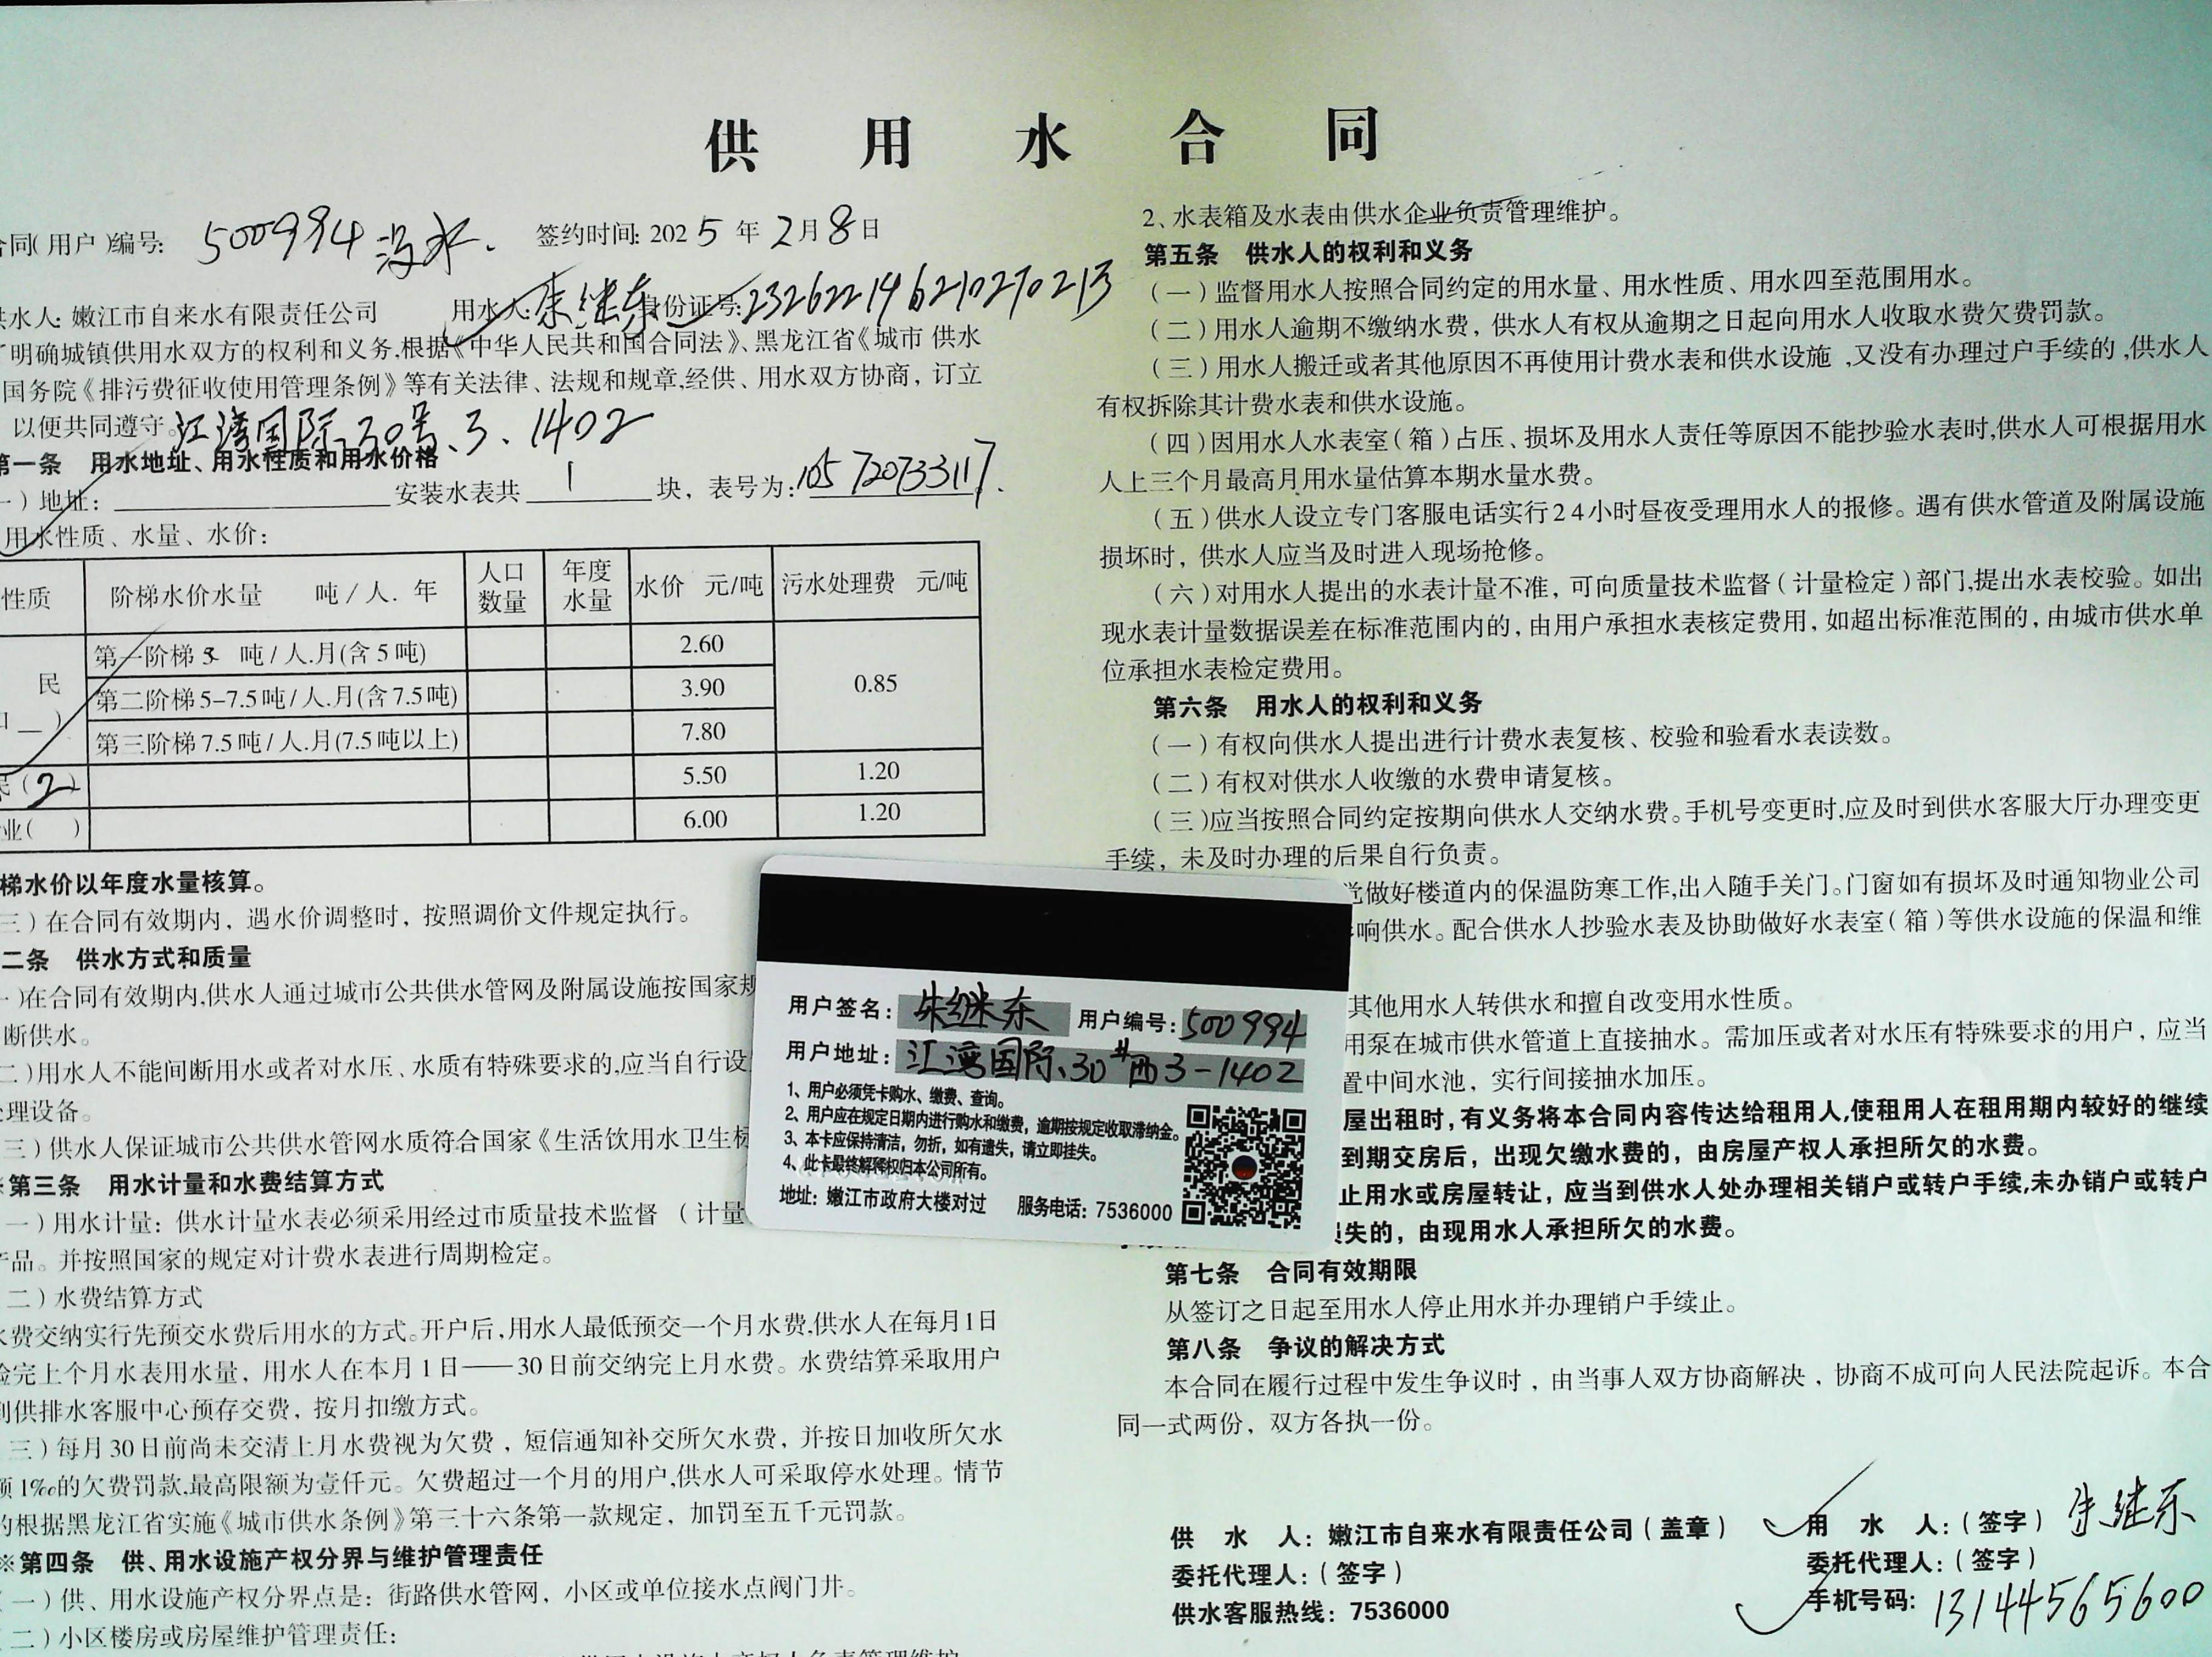 供用水合同
合同(用户)编号: 500994
签约时间: 2025年2月8日
供水人: 嫩江市自来水有限责任公司 用水人: 朱继东 身份证号: 232622196210270213
了明确城镇供用水双方的权利和义务,根据《中华人民共和国合同法》、黑龙江省《城市 供水
国务院《排污费征收使用管理条例》等有关法律、法规和规章,经供、用水双方协商，订立
以便共同遵守。
江湾国际、30号、3、1402
第一条 用水地址、用水性质和用水价格
一)地址: 安装水表共 1 块，表号为: 105720733117
用水性质、水量、水价:
性质 阶梯水价水量 吨/人.年 人口数量 年度水量 水价 元/吨 污水处理费 元/吨
民
第一阶梯 5 吨/人.月(含5吨) 2.60
第二阶梯5-7.5吨/人.月(含7.5吨) 3.90 0.85
第三阶梯7.5吨/人.月(7.5吨以上) 7.80
民(2) 5.50 1.20
业( ) 6.00 1.20
梯水价以年度水量核算。
三)在合同有效期内，遇水价调整时，按照调价文件规定执行。
二条 供水方式和质量
一)在合同有效期内,供水人通过城市公共供水管网及附属设施按国家规
断供水。
二)用水人不能间断用水或者对水压、水质有特殊要求的,应当自行设
处理设备。
三)供水人保证城市公共供水管网水质符合国家《生活饮用水卫生标
※第三条 用水计量和水费结算方式
一)用水计量：供水计量水表必须采用经过市质量技术监督 (计量
产品。并按照国家的规定对计费水表进行周期检定。
二)水费结算方式
水费交纳实行先预交水费后用水的方式。开户后,用水人最低预交一个月水费,供水人在每月1日
验完上个月水表用水量，用水人在本月1日——30日前交纳完上月水费。水费结算采取用户
到供排水客服中心预存交费，按月扣缴方式。
三)每月30日前尚未交清上月水费视为欠费，短信通知补交所欠水费，并按日加收所欠水
额1‰的欠费罚款,最高限额为壹仟元。欠费超过一个月的用户,供水人可采取停水处理。情节
的根据黑龙江省实施《城市供水条例》第三十六条第一款规定，加罚至五千元罚款。
※第四条 供、用水设施产权分界与维护管理责任
(一)供、用水设施产权分界点是：街路供水管网，小区或单位接水点阀门井。
(二)小区楼房或房屋维护管理责任:
2、水表箱及水表由供水企业负责管理维护。
第五条 供水人的权利和义务
(一)监督用水人按照合同约定的用水量、用水性质、用水四至范围用水。
(二)用水人逾期不缴纳水费，供水人有权从逾期之日起向用水人收取水费欠费罚款。
(三)用水人搬迁或者其他原因不再使用计费水表和供水设施,又没有办理过户手续的,供水人
有权拆除其计费水表和供水设施。
(四)因用水人水表室(箱)占压、损坏及用水人责任等原因不能抄验水表时,供水人可根据用水
人上三个月最高月用水量估算本期水量水费。
(五)供水人设立专门客服电话实行24小时昼夜受理用水人的报修。遇有供水管道及附属设施
损坏时，供水人应当及时进入现场抢修。
(六)对用水人提出的水表计量不准，可向质量技术监督(计量检定)部门,提出水表校验。如出
现水表计量数据误差在标准范围内的，由用户承担水表核定费用，如超出标准范围的，由城市供水单
位承担水表检定费用。
第六条 用水人的权利和义务
(一)有权向供水人提出进行计费水表复核、校验和验看水表读数。
(二)有权对供水人收缴的水费申请复核。
(三)应当按照合同约定按期向供水人交纳水费。手机号变更时,应及时到供水客服大厅办理变更
手续，未及时办理的后果自行负责。
做好楼道内的保温防寒工作,出入随手关门。门窗如有损坏及时通知物业公司
响供水。配合供水人抄验水表及协助做好水表室(箱)等供水设施的保温和维
其他用水人转供水和擅自改变用水性质。
用泵在城市供水管道上直接抽水。需加压或者对水压有特殊要求的用户，应当
置中间水池，实行间接抽水加压。
屋出租时，有义务将本合同内容传达给租用人,使租用人在租用期内较好的继续
到期交房后，出现欠缴水费的，由房屋产权人承担所欠的水费。
止用水或房屋转让，应当到供水人处办理相关销户或转户手续,未办销户或转户
失的，由现用水人承担所欠的水费。
第七条 合同有效期限
从签订之日起至用水人停止用水并办理销户手续止。
第八条 争议的解决方式
本合同在履行过程中发生争议时，由当事人双方协商解决，协商不成可向人民法院起诉。本合
同一式两份，双方各执一份。
供 水 人：嫩江市自来水有限责任公司(盖章)
委托代理人:(签字)
供水客服热线：7536000
用 水 人:(签字) 朱继东
委托代理人:(签字)
手机号码: 13144565600
用户签名: 朱继东 用户编号: 500994
用户地址: 江湾国际、30#西3-1402
1、用户必须凭卡购水、缴费、查询。
2、用户应在规定日期内进行购水和缴费，逾期按规定收取滞纳金。
3、本卡应保持清洁，勿折，如有遗失，请立即挂失。
4、此卡最终解释权归本公司所有。
地址：嫩江市政府大楼对过 服务电话：7536000